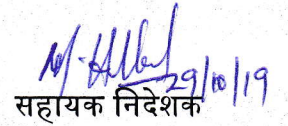 29/10/19
सहायक निदेशक